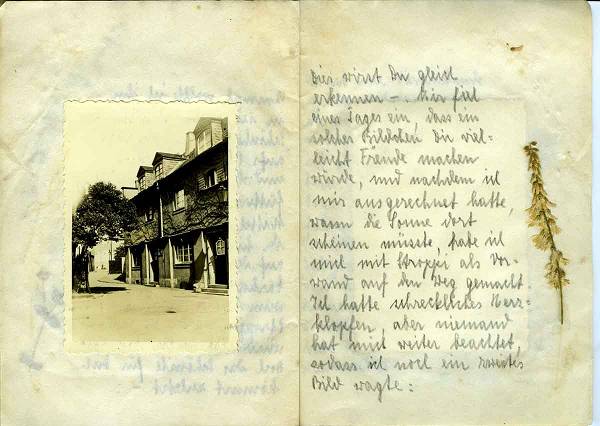 Dies wirst Du gleich
erkennen –. Mir fiel
eines Tages ein, dass ein
solches Bildchen Dir viel=
leicht Freude machen
würde, und nachdem ich
mir ausgerechnet hatte,
wann die Sonne dort
scheinen müsste, habe ich
mich mit Stroppi als Vor=
wand auf den Weg gemacht.
Ich hatte schreckliches Herz=
klopfen, aber niemand
hat mich weiter beachtet,
sodass ich noch ein zweites
Bild wagte: